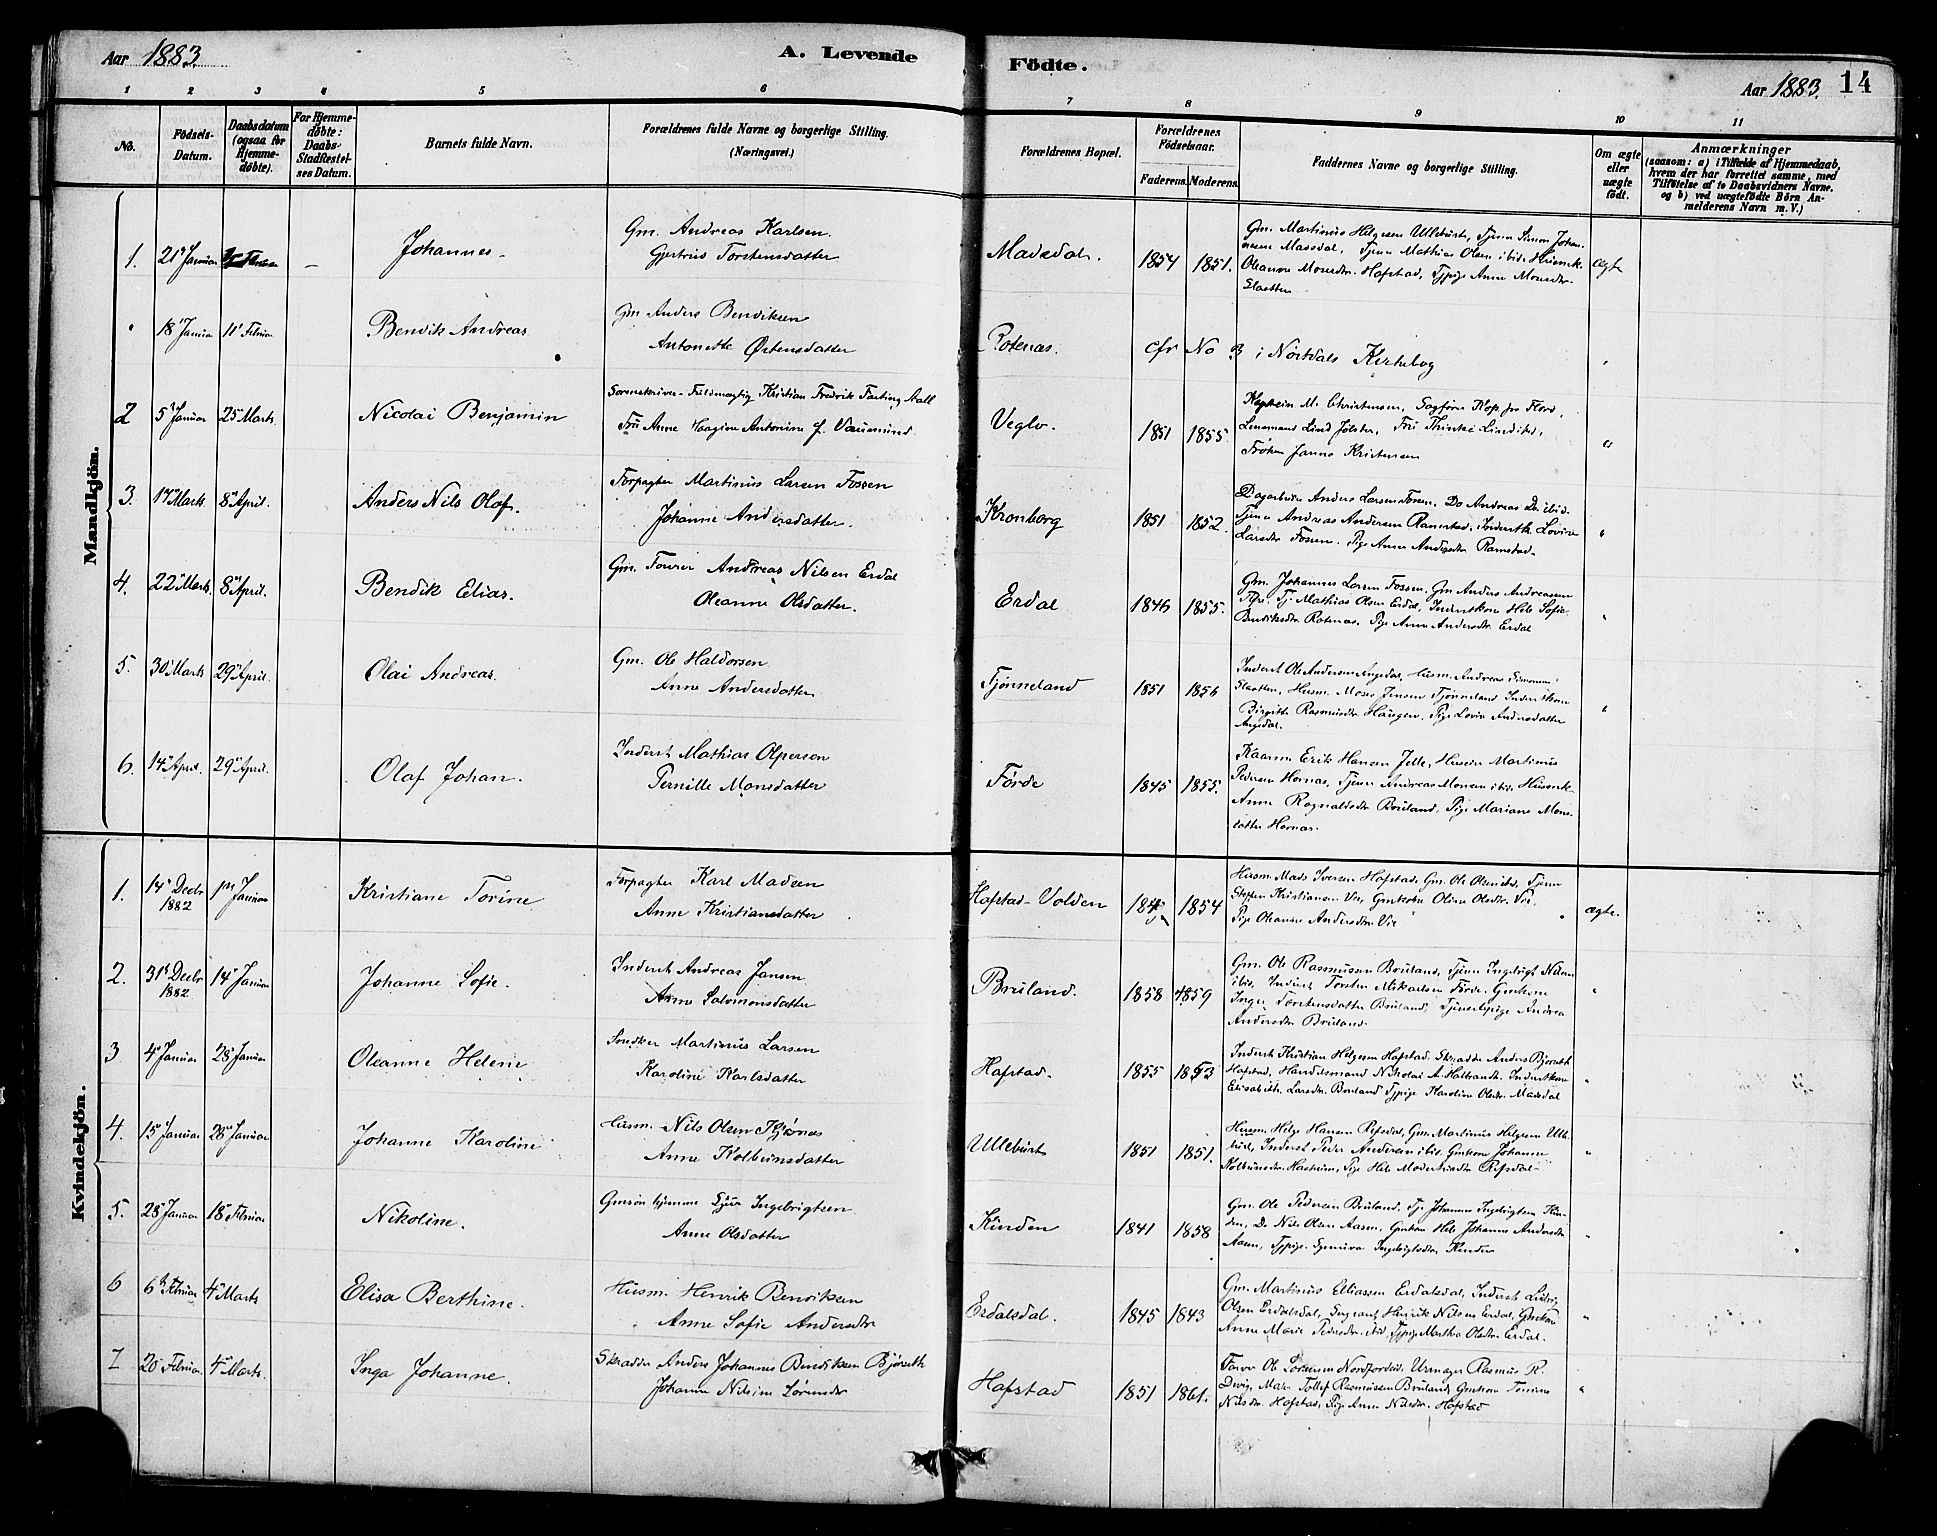 Aar 1883. A. Levende
Födte. Aar 1883. 14
1 2 3 4 5 6
7 8 9 10 11
No.
Födsels-
Datum.
Daabsdatum
(ogsaa for
Hjemme-
døbte).
For Hjemme-
døbte:
Daabs-
Stadfæstel-
ses Datum.
Barnets fulde Navn.
Forældrenes fulde Navne og borgerlige Stilling.
(Næringsvei.)
Forældrenes Bopæl.
Forældrenes
Födselsaar.
Faderens. Moderens.
Faddernes Navne og borgerlige Stilling.
Om ægte
eller
uægte
födt.
Anmærkninger
(saasom: a) i Tilfælde af Hjemmedaab,
hvem der har forrettet samme, med
Tilføielse af to Daabsvidners Navne.
og b) ved uægtefødte Börn An-
melderens Navn m. V.)
Mandkjön.
1. 21 Januar Johannes Gm. Andreas Karlsen
Gjertrud Torstensdatter
Madsdal. 1854 1851.
Gm. Martinus Helgesen Ullebust, Tjener Simon Johan-
nesen Massdal, Tjener Mathias Olsen ibid, Huusmk.
Oleanne Monsdtr. Hafstad, Tjpige Anne Monsdtr.
Slaatten
ægte
18 Januar 11 Februar Bendik Andreas Gm Anders Bendiksen
Antonette Østensdatter
Rotenæs. cfr No 3 i Nørdals Kirkebog
2 5 Januar 25 Marts Nicolai Benjamin Sorenskriver-Fuldmægtig Kristian Fredrik Farting Aall
Fru Anne Antonine f.
1851 1855.
Kaptein M. Christensen, Sagfører
Lensmand Lind Jølster, Fru
Frøken Janna Kristensen
3. 17 Marts 8 April. Anders Nils Olaf. Forpagter Martinus Larsen Fossen
Johanne Andersdatter.
Kronborg 1851 1852.
Anders Larsen Fossen, Do Andreas Do ibid.
Tjener Andreas Andersen Ramstad, Lovise
Larsdtr Fossen. Pige Anne Andersdtr Ramstad.
4. 22 Marts. 8 April. Bendik Elias. Gm. Fourer Andreas Nilsen Erdal
Oleanne Olsdatter.
Erdal 1846 1855.
Gm. Johannes Larsen Fossen, Gm Anders Andreassen
Tj Mathias Olsen Erdal, Inderstkone Sofie
Bendiksdtr Rotenæs, Pige Anne Andersdtr. Erdal
5. 30 Marts 29 April. Olai Andreas. Gm. Ole Haldorsen
Anne Andersdatter
Tjønneland 1851 1856
Inderst Ole Andersen Angedal, Husm. Andreas Simonsen
Slaatten, Husm. Moses Jensen Tjønneland Inderstkone
Birgitte Rasmusdtr Haugen, Pige Lovise Andersdatter
Angedal.
6. 14 April. 29 April. Olaf Johan. Inderst Mathias Olperson
Pernille Monsdatter
Førde 1845 1855.
Kaarm Erik Hansen Jelle, Huseier Martinus
Pedersen Hornæs, Tjener Andreas Monsen ibid, Husmk-
Anne Rognaldsdtr Bruland, Pige Mariane Mons-
datter Hornæs.
Kvindekjön.
1. 14 Decbr
1882
Januar Kristiane Torine Forpagter Karl Madsen
Anne Kristiansdatter
Hafstad-Volden 1854
Husm. Mads Iversen Hafstad, Gm. Ole Olsen ibid, Tjener
Steffen Kristiansen Vie, Gmkone Oline Olsdtr. Vie,
Pige Oleanne Andersdtr. Vie
ægte.
2. 31 Decbr
1882
14 Januar Johanne Sofie. Inderst Andreas Jansen
Anne Salomonsdatter
Bruland. 1858 1859
Gm. Ole Rasmussen Bruland, Tjener Ingebrigt Nilsen
ibid, Inderst Torsten Mikalsen Førde, Gmkone
Inger Torstensdatter Bruland, Tjenestepige Andrea
Andersdtr Bruland.
3 4 Januar 28 Januar Oleanne Helene Snedker Martinus Larsen
Karoline Karlsdatter
Hafstad. 1855 1853
Inderst Kristian Helgesen Hafstad, Skrædder Anders Bjørseth
Hafstad, Handelsmand Nikolai A. Halbrendt. Inderstkone
Elisabeth Larsdtr. Bruland Tjpige Karoline Olsdtr. Massdal
4. 15 Januar 28 Januar Johanne Karoline Husm. Nils Olsen
Anne Kolbeinsdatter
Ullebust 1851 1851.
Husm. Helge Hansen Refsdal, Gm. Martinus Helgesen Ulle-
bust, Inderst Peder Andersen ibid. Gmkone Johanne
Kolbeinsdtr. Hasteim, Pige Refsdal
5. 28 Januar 18 Februar Nikoline. Gmsøn hjemme Sjur Ingebrigtsen
Anne Olsdatter
Kinden 1841 1858
Gm. Ole Pedersen Bruland, Tj. Johannes Ingebrigtsen Kin-
den, Do. Nils Olsen Aasen, Gmkone Johanne Andersdtr
Aasen, Tjpige Synneva Ingebrigtsdtr. Kinden
6 6 Februar 4 Marts Elisa Berthine. Husm. Henrik Bendiksen
Anne Sofie Andersdtr
Erdalsdal. 1845 1843
Gm. Martinus Eliassen Erdalsdal, Inderst Ludvig
Olsen Erdalsdal, Sergeant Henrik Nilsen Erdal, Gmkone
Anne Marie Pedersdtr. ibid, Tjpige Martha Olsdtr. Erdal.
7 20 Februar. 4 Marts. Inga Johanne. Skrædder Anders Johannes Bendiksen Bjørseth
Johanne Nilsine Sørensdtr
Hafstad 1851 1861.
Farver Ole Sørensen Nordfjordeid, Urmager Rasmus R.
Devig, Maler Tollef Rasmussen Bruland, Gmkone
Nilsdtr. Hafstad, Pige Anne Nilsdtr. Hafstad